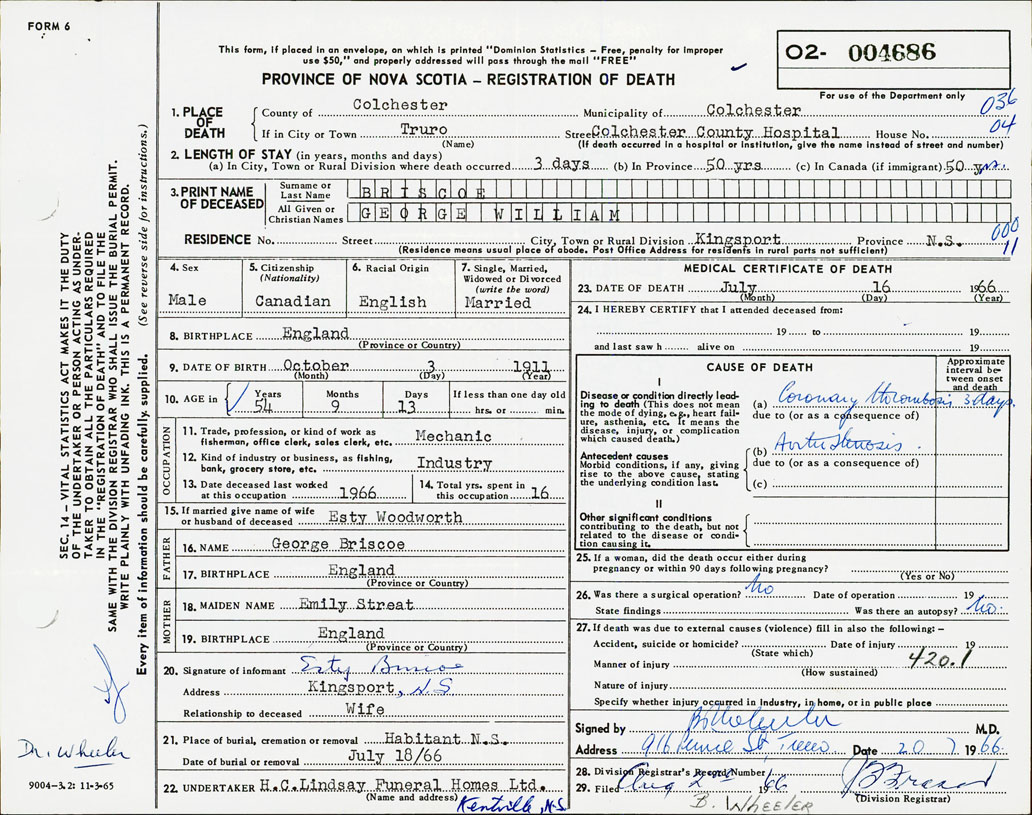 FORM 6
This form, if placed in an envelope, on which is printed "Dominion Statistics – Free, penalty for improper
use $50," and properly addressed will pass through the mail "FREE"
PROVINCE OF NOVA SCOTIA – REGISTRATION OF DEATH
O2- 004686
For use of the Department only
036
04
1. PLACE OF DEATH
County of Colchester Municipality of Colchester
If in City or Town Truro Street Colchester County Hospital House No.
(Name) (If death occurred in a hospital or institution, give the name instead of street and number)
2. LENGTH OF STAY (in years, months and days)
(a) In City, Town or Rural Division where death occurred 3 days (b) In Province 50 yrs (c) In Canada (if immigrant) 50 yrs.
3. PRINT NAME OF DECEASED
Surname or Last Name BRISCOE
All Given or Christian Names GEORGE WILLIAM
000
11
RESIDENCE No. Street City, Town or Rural Division Kingsport Province N.S.
(Residence means usual place of abode. Post Office Address for residents in rural parts not sufficient)
4. Sex
Male
5. Citizenship
(Nationality)
Canadian
6. Racial Origin
English
7. Single, Married,
Widowed or Divorced
(write the word)
Married
8. BIRTHPLACE England
(Province or Country)
9. DATE OF BIRTH October 3 1911
(Month) (Day) (Year)
10. AGE in
Years 54
Months 9
Days 13
If less than one day old
hrs. or min.
OCCUPATION
11. Trade, profession, or kind of work as
fisherman, office clerk, sales clerk, etc. Mechanic
12. Kind of industry or business, as fishing,
bank, grocery store, etc. Industry
13. Date deceased last worked
at this occupation 1966
14. Total yrs. spent in
this occupation 16
15. If married give name of wife
or husband of deceased Esty Woodworth
FATHER
16. NAME George Briscoe
17. BIRTHPLACE England
(Province or Country)
MOTHER
18. MAIDEN NAME Emily Streat
19. BIRTHPLACE England
(Province or Country)
20. Signature of informant Esty Briscoe
Address Kingsport, N.S
Relationship to deceased Wife
21. Place of burial, cremation or removal Habitant N.S.
Date of burial or removal July 18/66
22. UNDERTAKER H.C.Lindsay Funeral Homes Ltd.
(Name and address) Kentville, N.S.
MEDICAL CERTIFICATE OF DEATH
23. DATE OF DEATH July 16 1966
(Month) (Day) (Year)
24. I HEREBY CERTIFY that I attended deceased from:
19 to 19
and last saw h alive on 19
CAUSE OF DEATH
Approximate
interval be-
tween onset
and death
I
Disease or condition directly lead-
ing to death (This does not mean
the mode of dying, e.g., heart fail-
ure, asthenia, etc. It means the
disease, injury, or complication
which caused death.)
(a) Coronary thrombosis 3 days.
due to (or as a consequence of)
Antecedent causes
Morbid conditions, if any, giving
rise to the above cause, stating
the underlying condition last.
(b) Aortic Stenosis
due to (or as a consequence of)
(c)
II
Other significant conditions
contributing to the death, but not
related to the disease or condi-
tion causing it.
25. If a woman, did the death occur either during
pregnancy or within 90 days following pregnancy?
(Yes or No)
26. Was there a surgical operation? No Date of operation 19
State findings Was there an autopsy? No.
27. If death was due to external causes (violence) fill in also the following: –
Accident, suicide or homicide? Date of injury 19
(State which)
420.1
Manner of injury
(How sustained)
Nature of injury
Specify whether injury occurred in industry, in home, or in public place
Signed by Wheeler M.D.
Address 916 Prince St, Truro Date 20 7 1966.
28. Division Registrar's Record Number
29. Filed Aug 2 1966
(Division Registrar)
B. WHEELER
SEC. 14 – VITAL STATISTICS ACT MAKES IT THE DUTY
OF THE UNDERTAKER OR PERSON ACTING AS UNDER-
TAKER TO OBTAIN ALL THE PARTICULARS REQUIRED
IN THE "REGISTRATION OF DEATH" AND TO FILE THE
SAME WITH THE DIVISION REGISTRAR WHO SHALL ISSUE THE BURIAL PERMIT.
WRITE PLAINLY WITH UNFADING INK. THIS IS A PERMANENT RECORD.
Every item of information should be carefully. supplied. (See reverse side for instructions.)
Dr. Wheeler
9004-3.2: 11-3-65